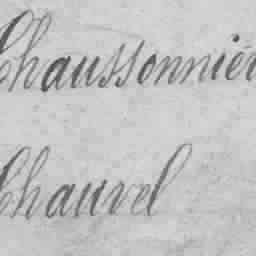 Chaussonnièr
Chauvel